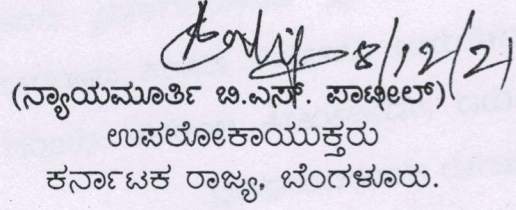 8/12/21
(ನ್ಯಾಯಮೂರ್ತಿ ಬಿ.ಎಸ್. ಪಾಟೀಲ್)
ಉಪಲೋಕಾಯುಕ್ತರು
ಕರ್ನಾಟಕ ರಾಜ್ಯ, ಬೆಂಗಳೂರು.